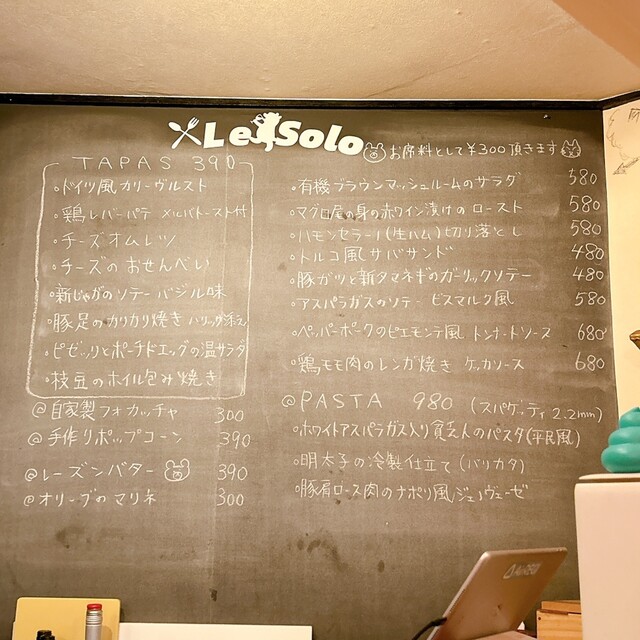 Le Solo
お席料として¥300頂きます
TAPAS 390
・ドイツ風カリーヴルスト
・鶏レバーパテ メルバトースト付
・チーズオムレツ
・チーズのおせんべい
・新じゃがのソテー バジル味
・豚足のカリカリ焼き ハリッサ添え
・ピゼッリとポーチドエッグの温サラダ
・枝豆のホイル包み焼き
@自家製フォカッチャ 300
@手作りポップコーン 390
@レーズンバター 390
@オリーブのマリネ 300
・有機ブラウンマッシュルームのサラダ 580
・マグロ尾の身の赤ワイン漬けのロースト 580
・ハモンセラーノ(生ハム)切り落とし 580
・トルコ風サバサンド 480
・豚ガツと新タマネギのガーリックソテー 480
・アスパラガスのソテー ビスマルク風 580
・ペッパーポークのピエモンテ風 トンナートソース 680
・鶏モモ肉のレンガ焼き ケッカソース 680
@PASTA 980 (スパゲッティ2.2mm)
・ホワイトアスパラガス入り貧乏人のパスタ(平民風)
・明太子の冷製仕立て(バリカタ)
・豚肩ロース肉のナポリ風ジェノヴェーゼ